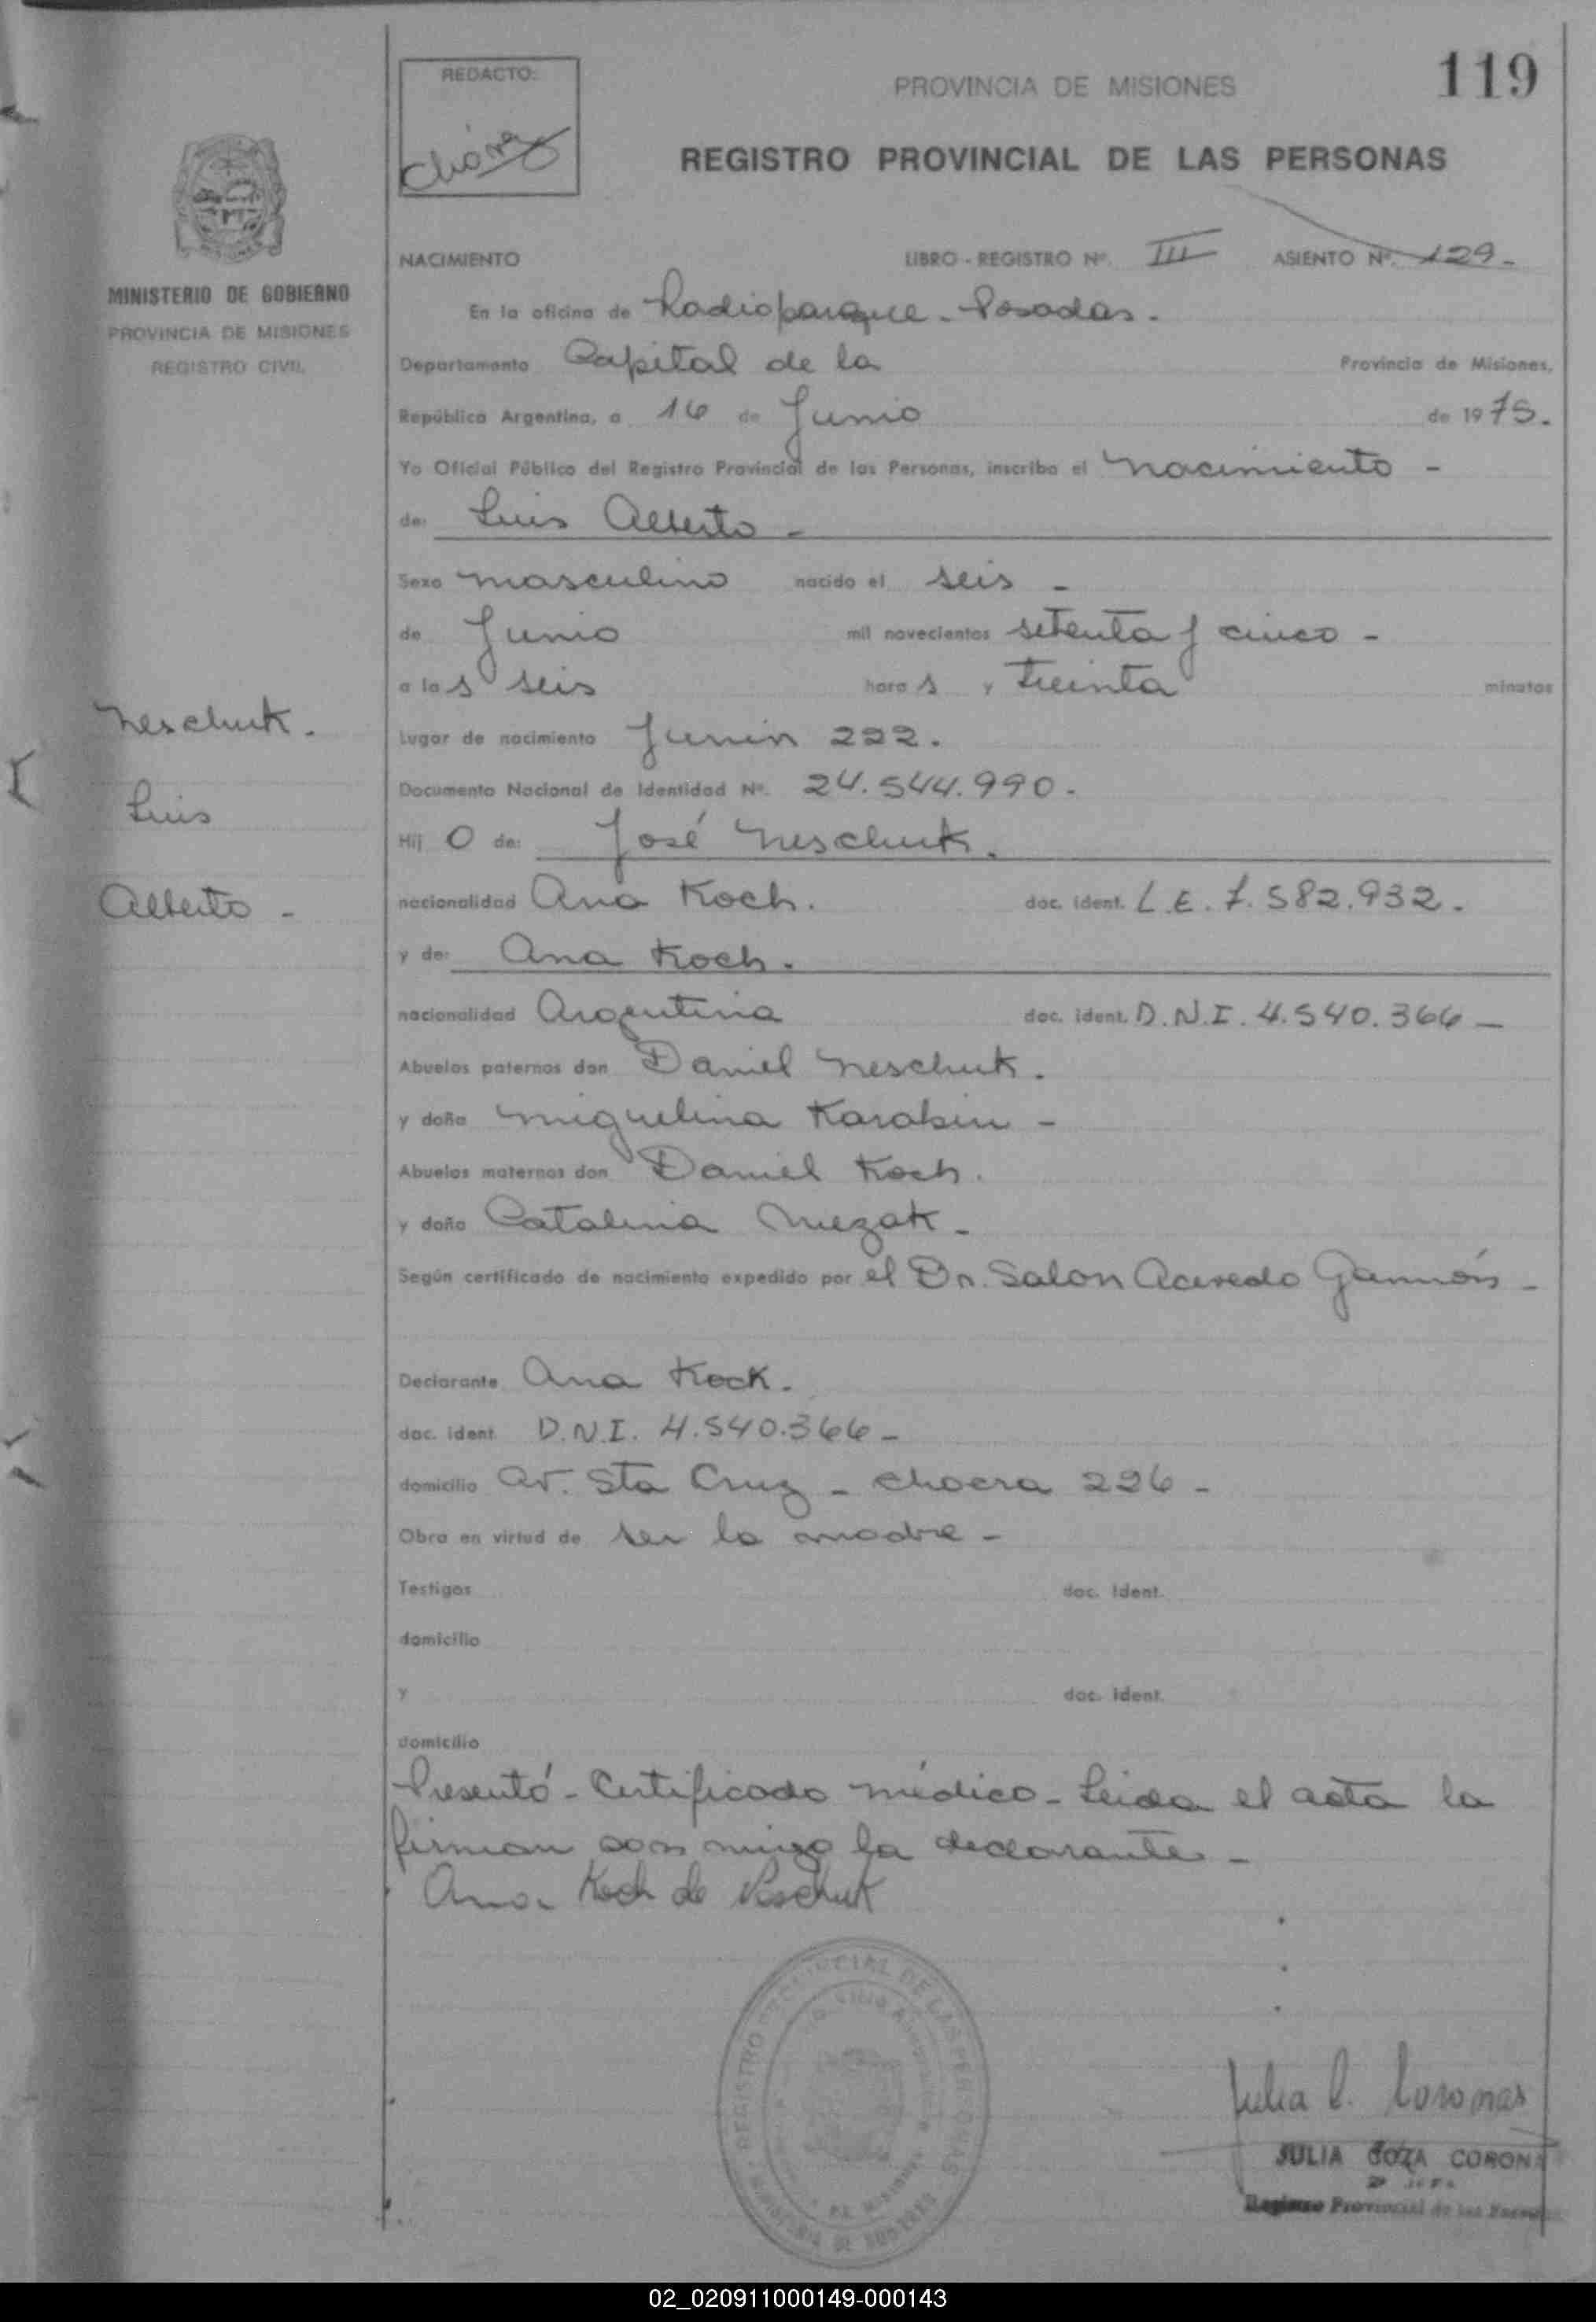 119
REDACTO:
PROVINCIA DE MISIONES
REGISTRO PROVINCIAL DE LAS PERSONAS
MINISTERIO DE GOBIERNO
PROVINCIA DE MISIONES
REGISTRO CIVIL
NACIMIENTO LIBRO - REGISTRO Nº. III ASIENTO Nº. 129.-
En la oficina de Radioparque - Posadas.
Departamento Capital de la Provincia de Misiones,
República Argentina, a 16 de Junio de 1975.
Yo Oficial Público del Registro Provincial de las Personas, inscribo el Nacimiento -
de: Luis Alberto -
Sexo masculino nacido el seis -
de Junio mil novecientos setenta y cinco -
a las seis horas y treinta minutos
Neschuk.
Lugar de nacimiento Junin 222.
Documento Nacional de Identidad Nº. 24.544.990.
Luis
Hij o de: José Neschuk.
Alberto -
nacionalidad Ana Koch. doc. ident. L.E. 7.582.932.
y de: Ana Koch.
nacionalidad Argentina doc. ident. D.N.I. 4.540.366 -
Abuelos paternos don Daniel Neschuk.
y doña Miguelina Karabin -
Abuelos maternos don Daniel Koch.
y doña Catalina
Según certificado de nacimiento expedido por el Dr. Salon Acevedo
Declarante Ana Kock.
doc. ident. D.N.I. 4.540.366 -
domicilio Av. Sta Cruz - chacra 226 -
Obra en virtud de ser la madre -
Testigos doc. ident.
domicilio
y doc. ident.
domicilio
Presentó - Certificado médico - Leida el acta la
firman con migo la declarante -
Ana Koch de Neschuk
REGISTRO PROVINCIAL DE LAS PERSONAS
Julia C. Coronas
JULIA COZA CORONA
Registro Provincial de las
02_020911000149-000143